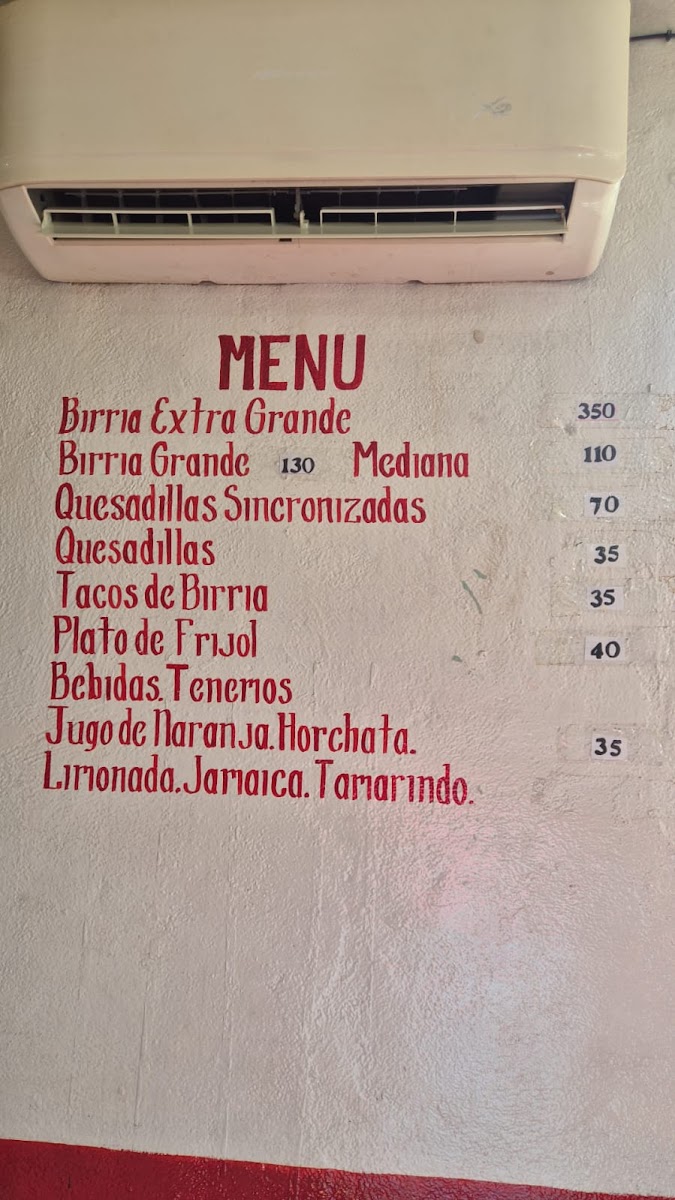 MENU
Birria Extra Grande 350
Birria Grande 130 Mediana 110
Quesadillas Sincronizadas 70
Quesadillas 35
Tacos de Birria 35
Plato de Frijol 40
Bebidas. Tenemos
Jugo de Naranja. Horchata. 35
Limonada. Jamaica. Tamarindo.